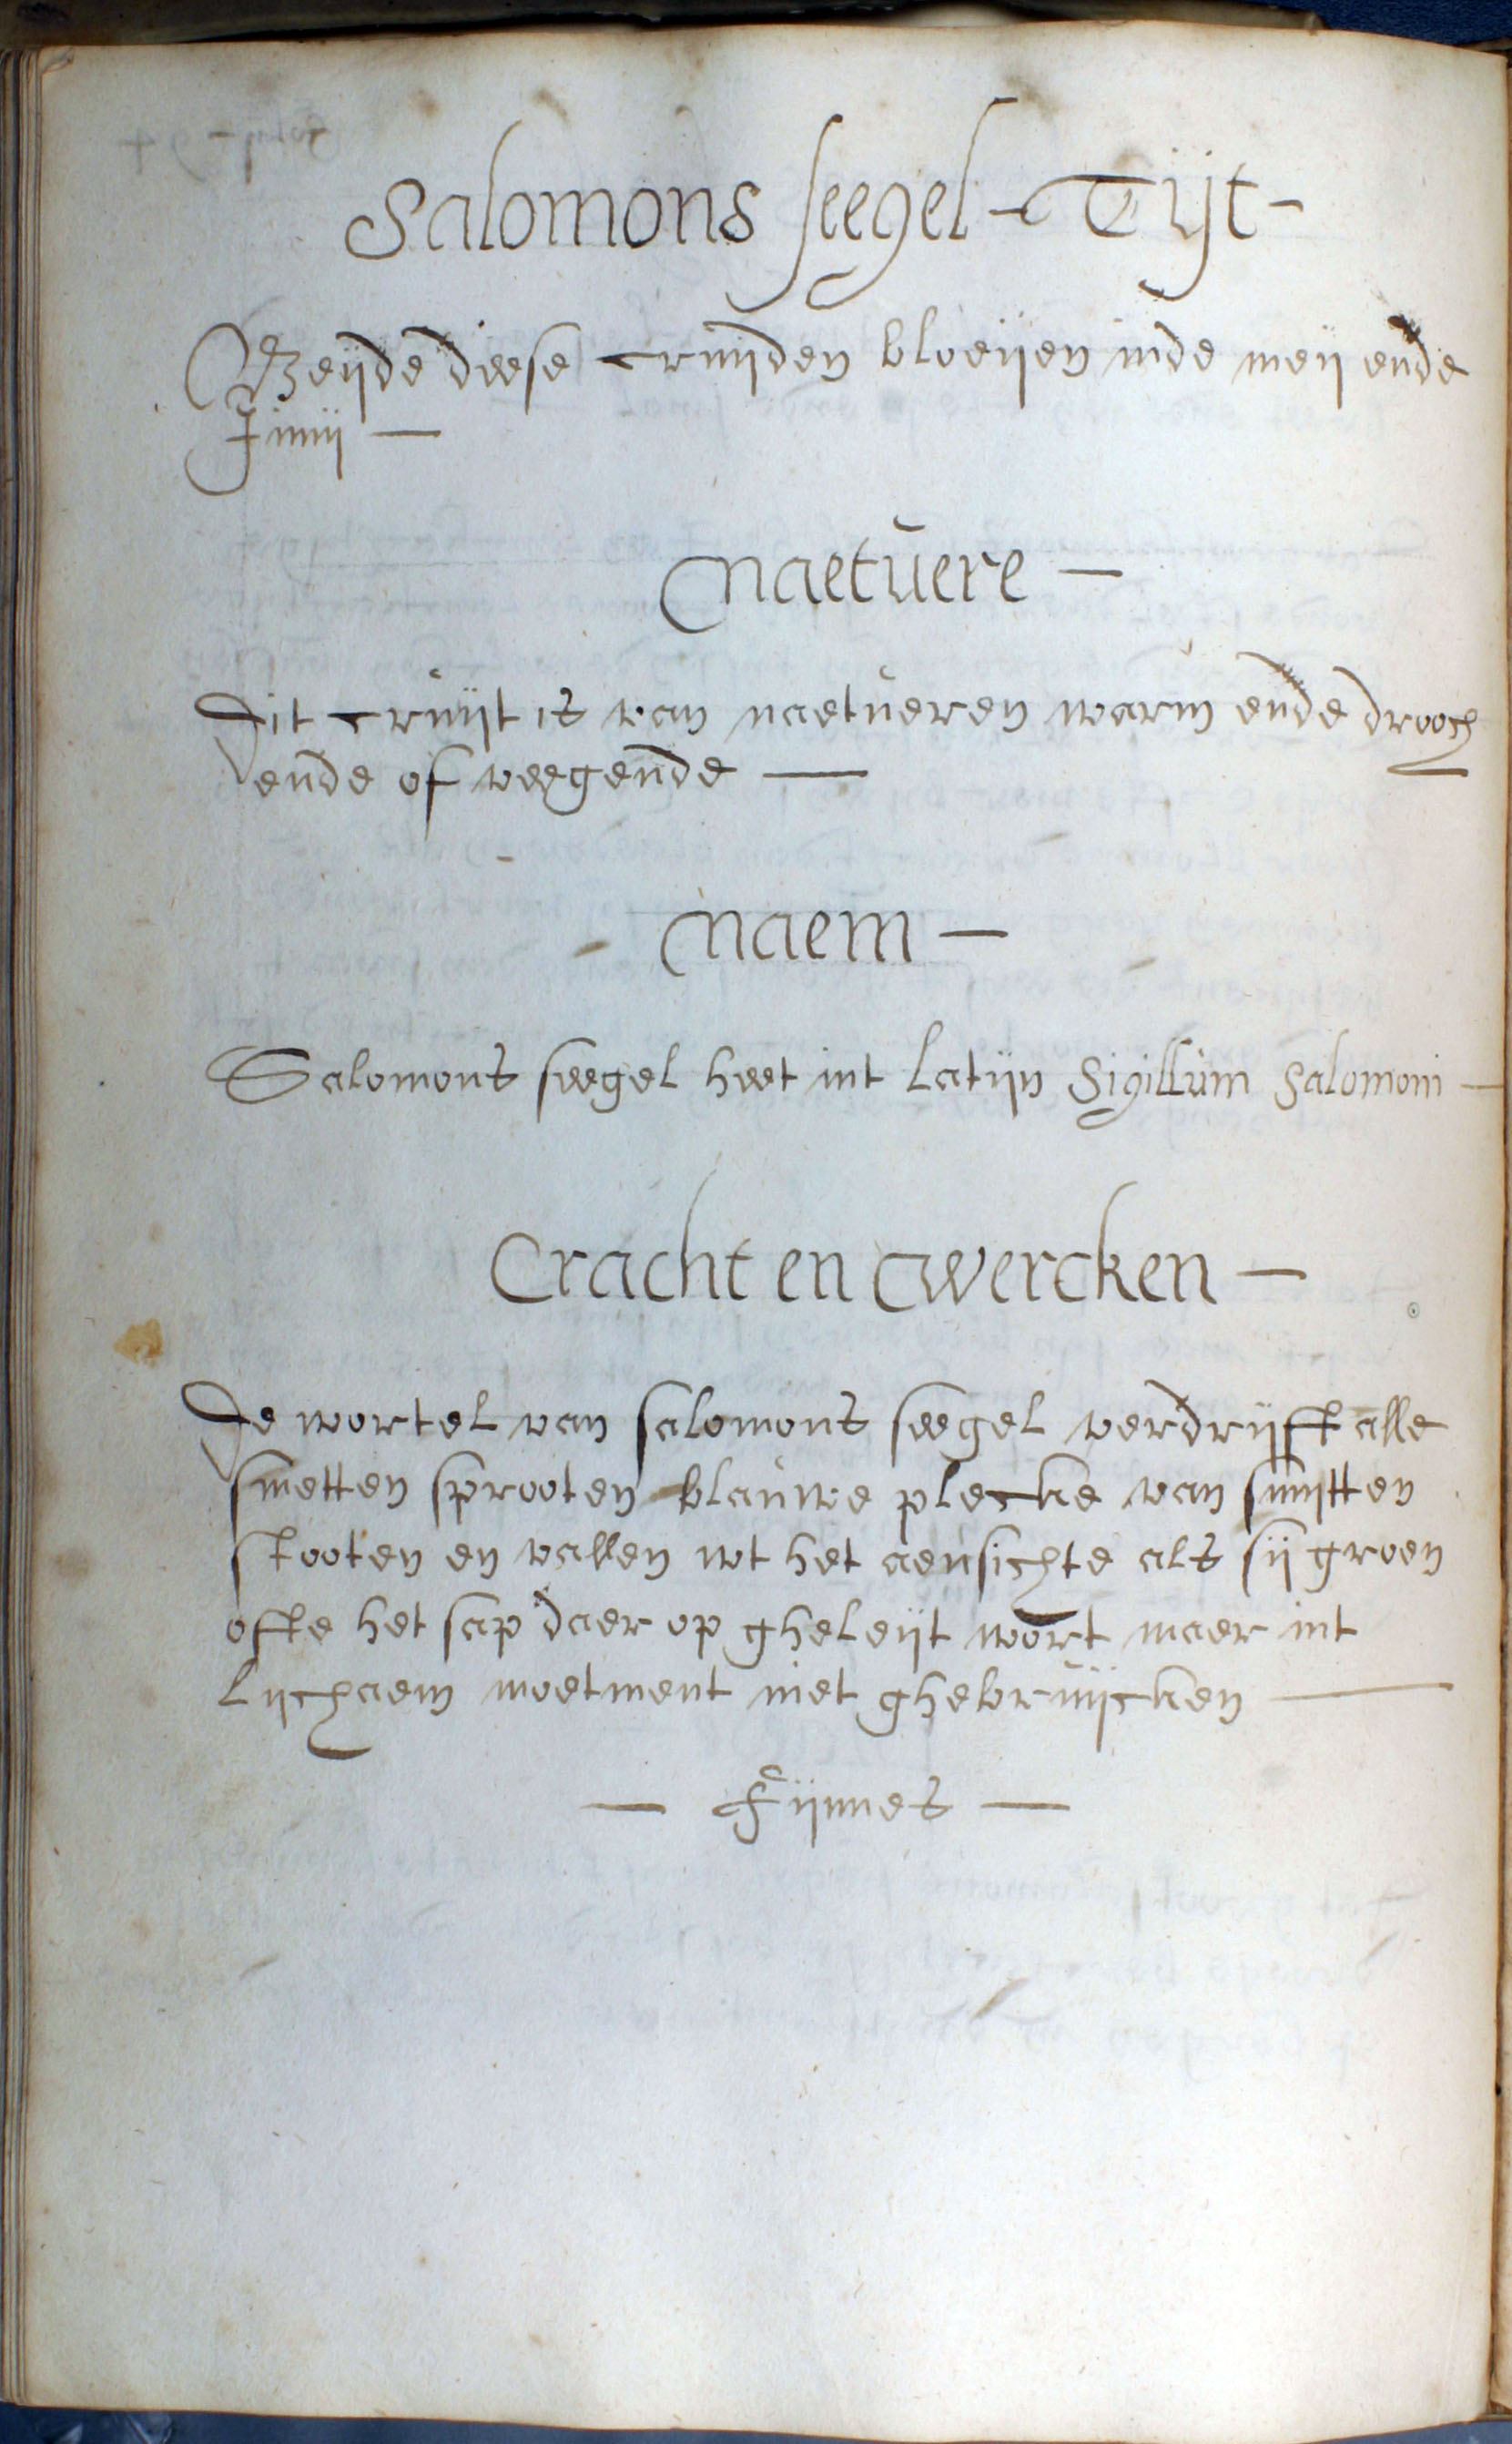 Salomons seegel - Tijt -
Beijde deese cruijden bloeijen inde meij ende
Junij —
Naetuere —
Dit cruijt is van naetueren warm ende drooch
ende of veegende —
Naem —
Salomons seegel heet int Latijn Sigillum Salomoni —
Cracht en Wercken —
De wortel van salomons seegel verdrijft alle
smetten sprooten blauwe plecke van smijtten
stooten en vallen wt het aensichte als sij groen
ofte het sap daer op gheleijt wort maer int
lijchaem moetment niet ghebruijcken —
— Fijnnes —